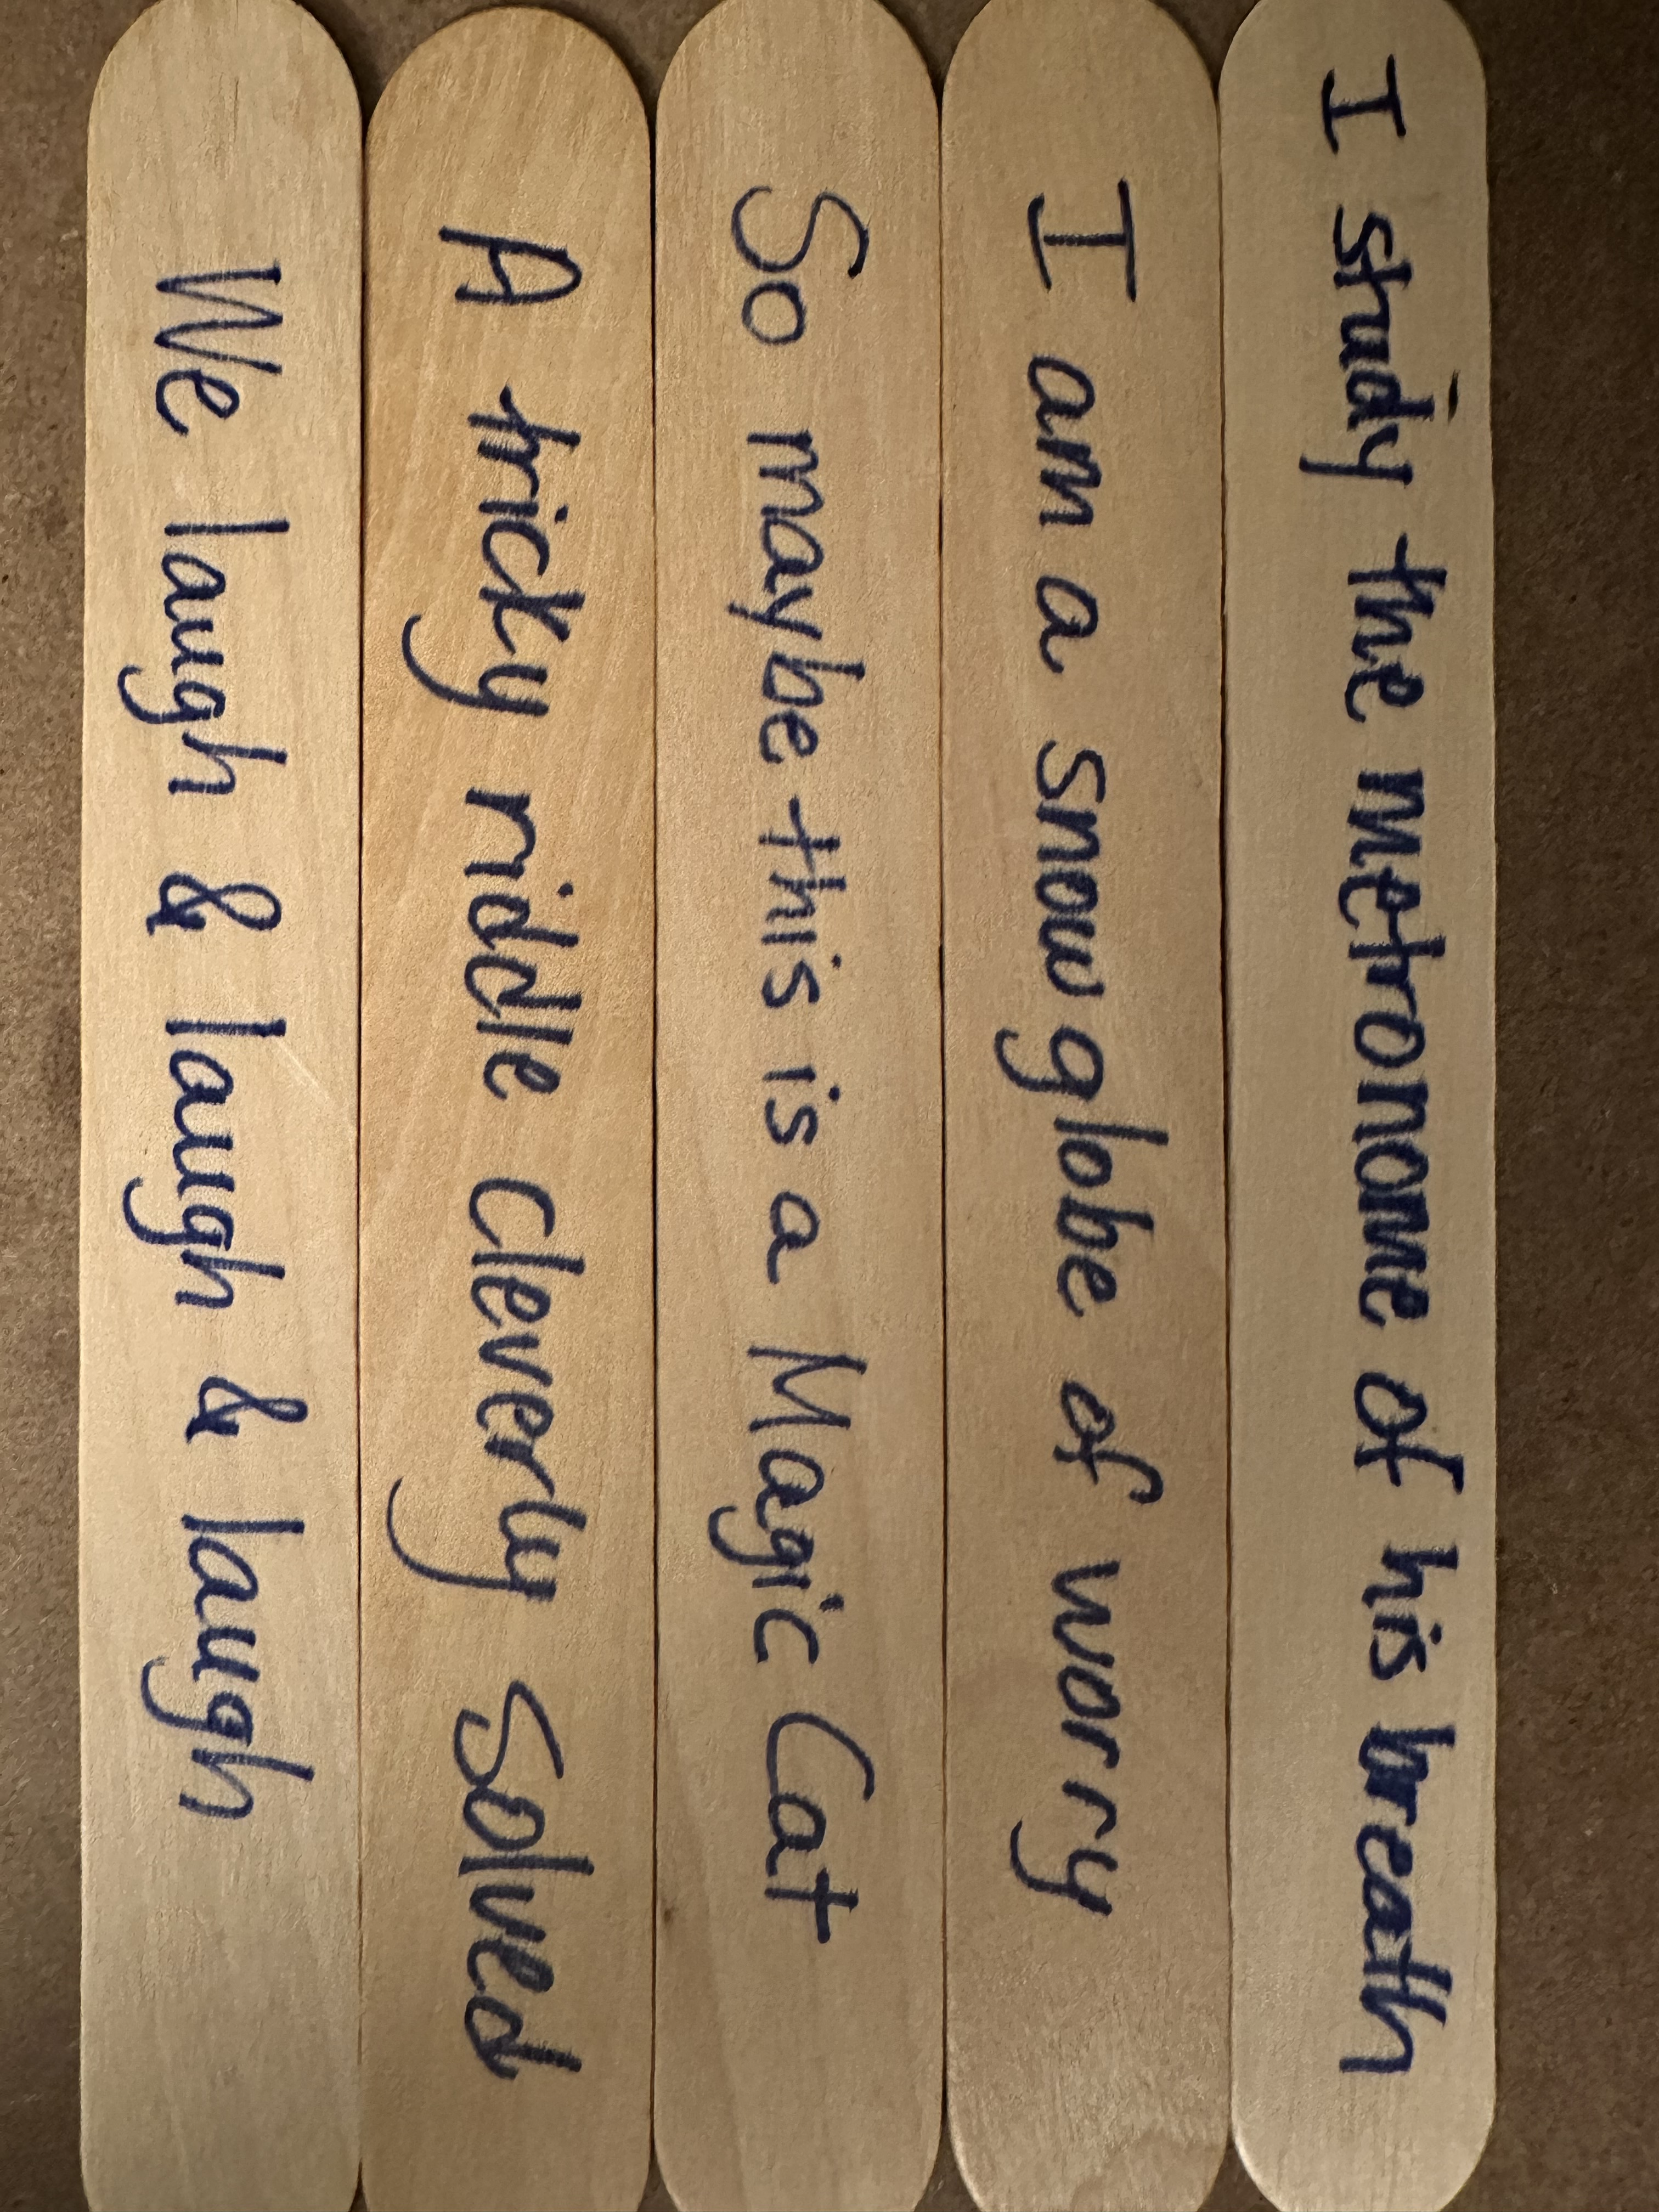 I study the metronome of his breath
I am a snow globe of worry
So maybe this is a Magic Cat
A tricky riddle cleverly solved
We laugh & laugh & laugh